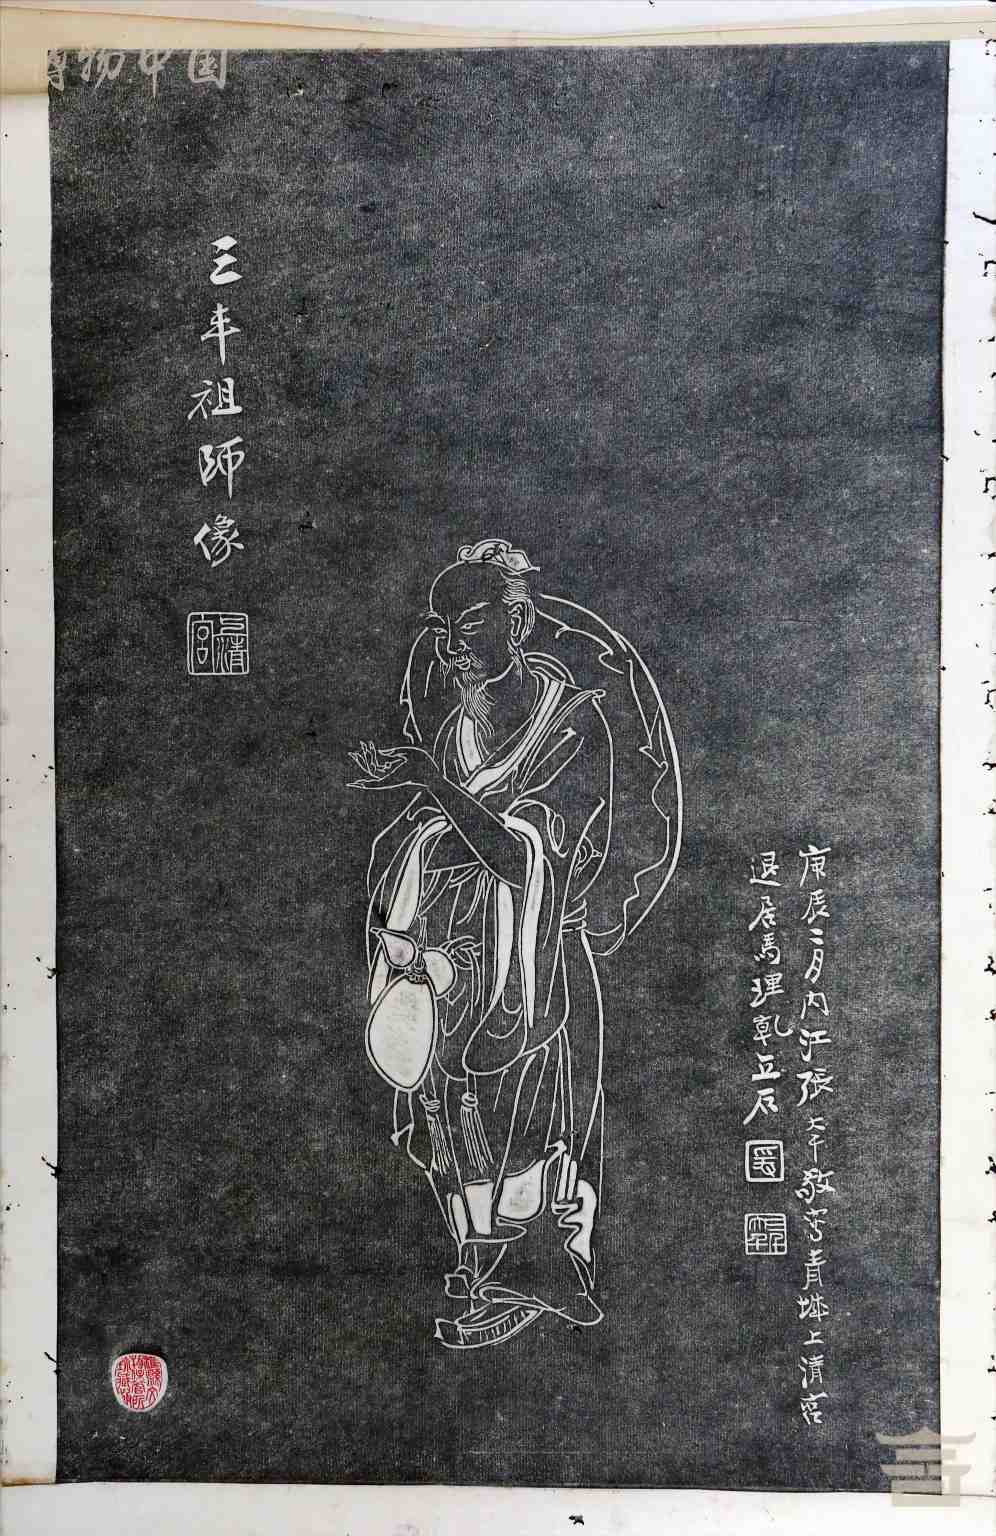 博物中国
三丰祖師像
庚辰二月内江張大千敬寫青城上清宮
退居馬理乾立石